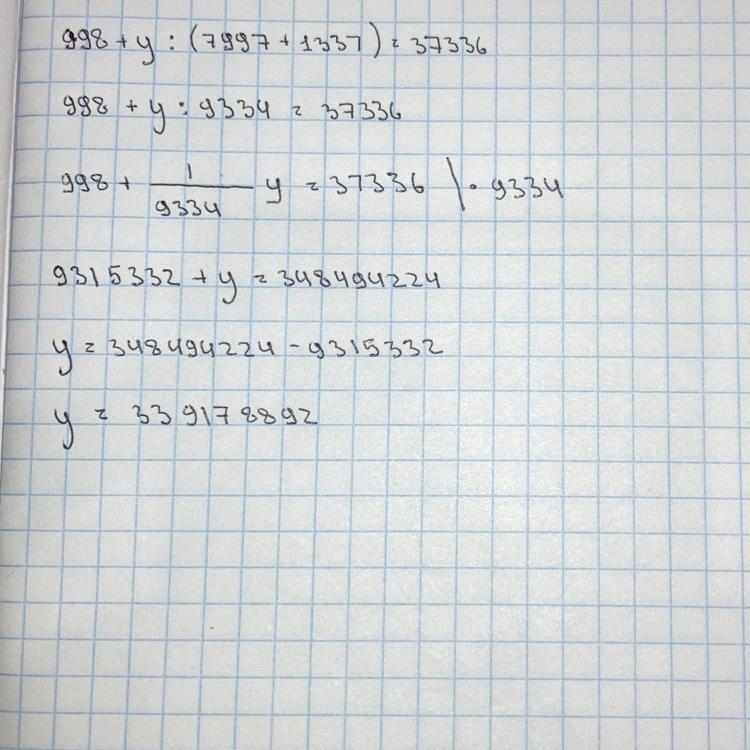 998 + y : (7997 + 1337) = 37336
998 + y : 9334 = 37336
998 + 1/9334 y = 37336 | · 9334
9315332 + y = 348494224
y = 348494224 - 9315332
y = 339178892